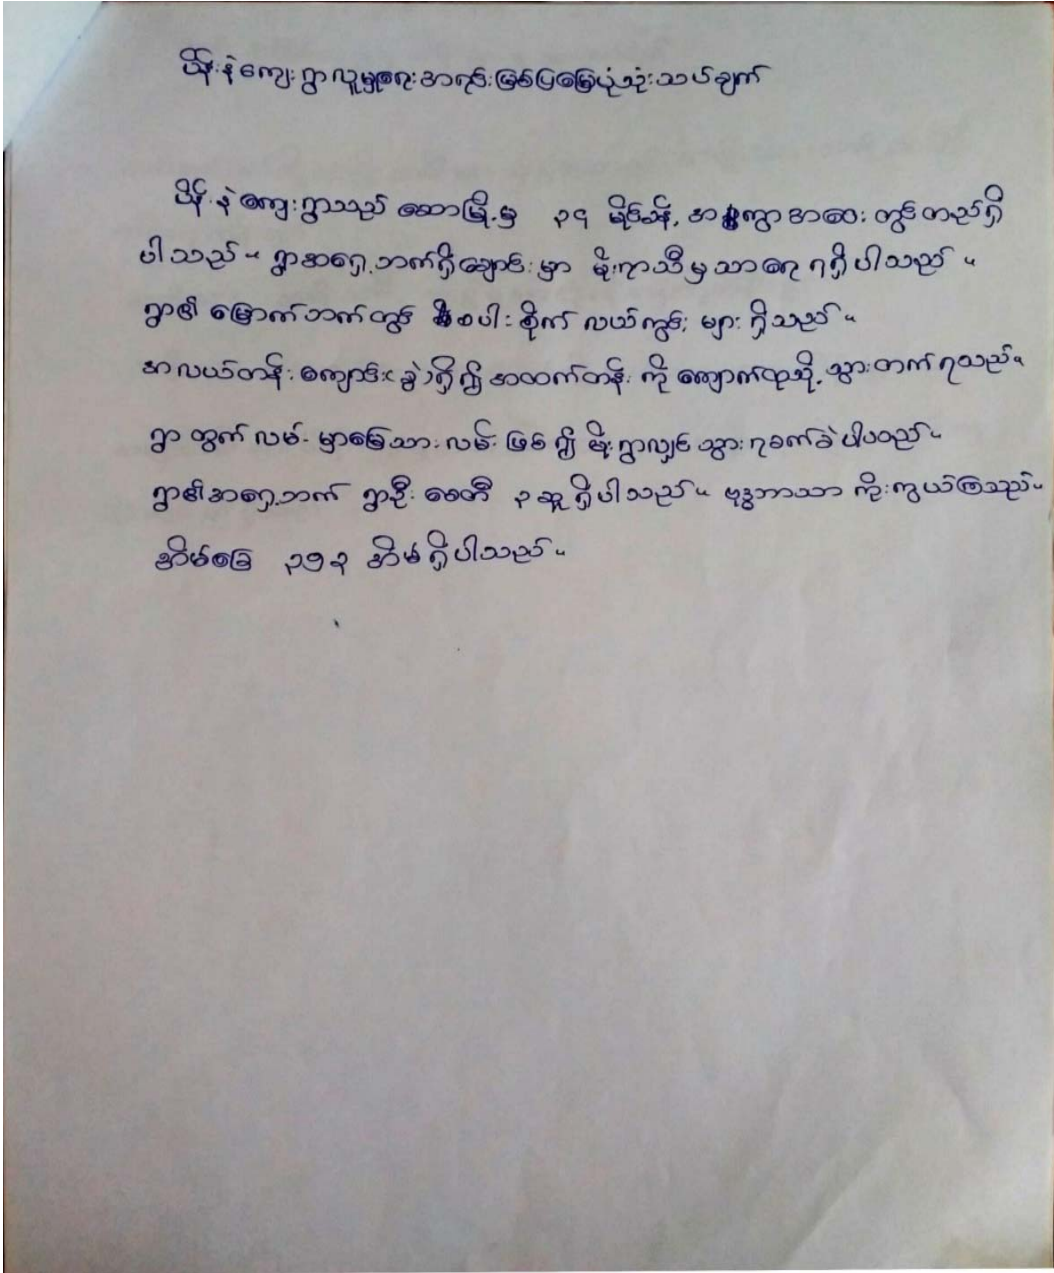 ပိန်းနဲကျေးရွာလူမှုရေးအရင်းမြစ်ပြမြေပုံသုံးသပ်ချက်
ပိန်းနဲကျေးရွာသည် ဆောမြို့မှ ၃၄ မိုင်ခန့် အကွာအဝေးတွင်တည်ရှိ
ပါသည်။ ရွာအရှေ့ဘက်ရှိချောင်းမှာ မိုးရာသီမှသာရေရရှိပါသည်။
ရွာ၏ မြောက်ဘက်တွင် စပါးစိုက် လယ်ကွင်းများ ရှိသည်။
အလယ်တန်းကျောင်း(ခွဲ)ရှိ၍ အထက်တန်းကို ကျောက်ထုသို့ သွားတက်ရသည်။
ရွာထွက်လမ်းမှာမြေသားလမ်းဖြစ်၍ မိုးရွာလျှင် သွားရခက်ခဲပါသည်။
ရွာ၏အရှေ့ဘက် ရွာဦးစေတီ ၃ ဆူရှိပါသည်။ ဗုဒ္ဓဘာသာ ကိုးကွယ်ကြသည်။
အိမ်ခြေ ၃၅၃ အိမ်ရှိပါသည်။